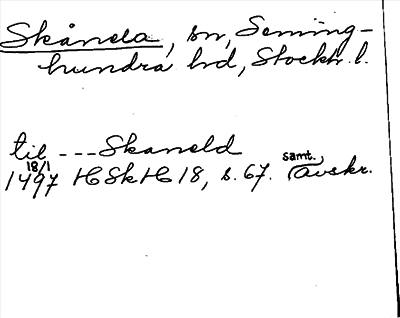 Skånela, sn, Seming-
hundra hd, Stockh. l.
til --- Skaneld
18/1 samt.
1497 HSkH 18, s. 67. Avskr.